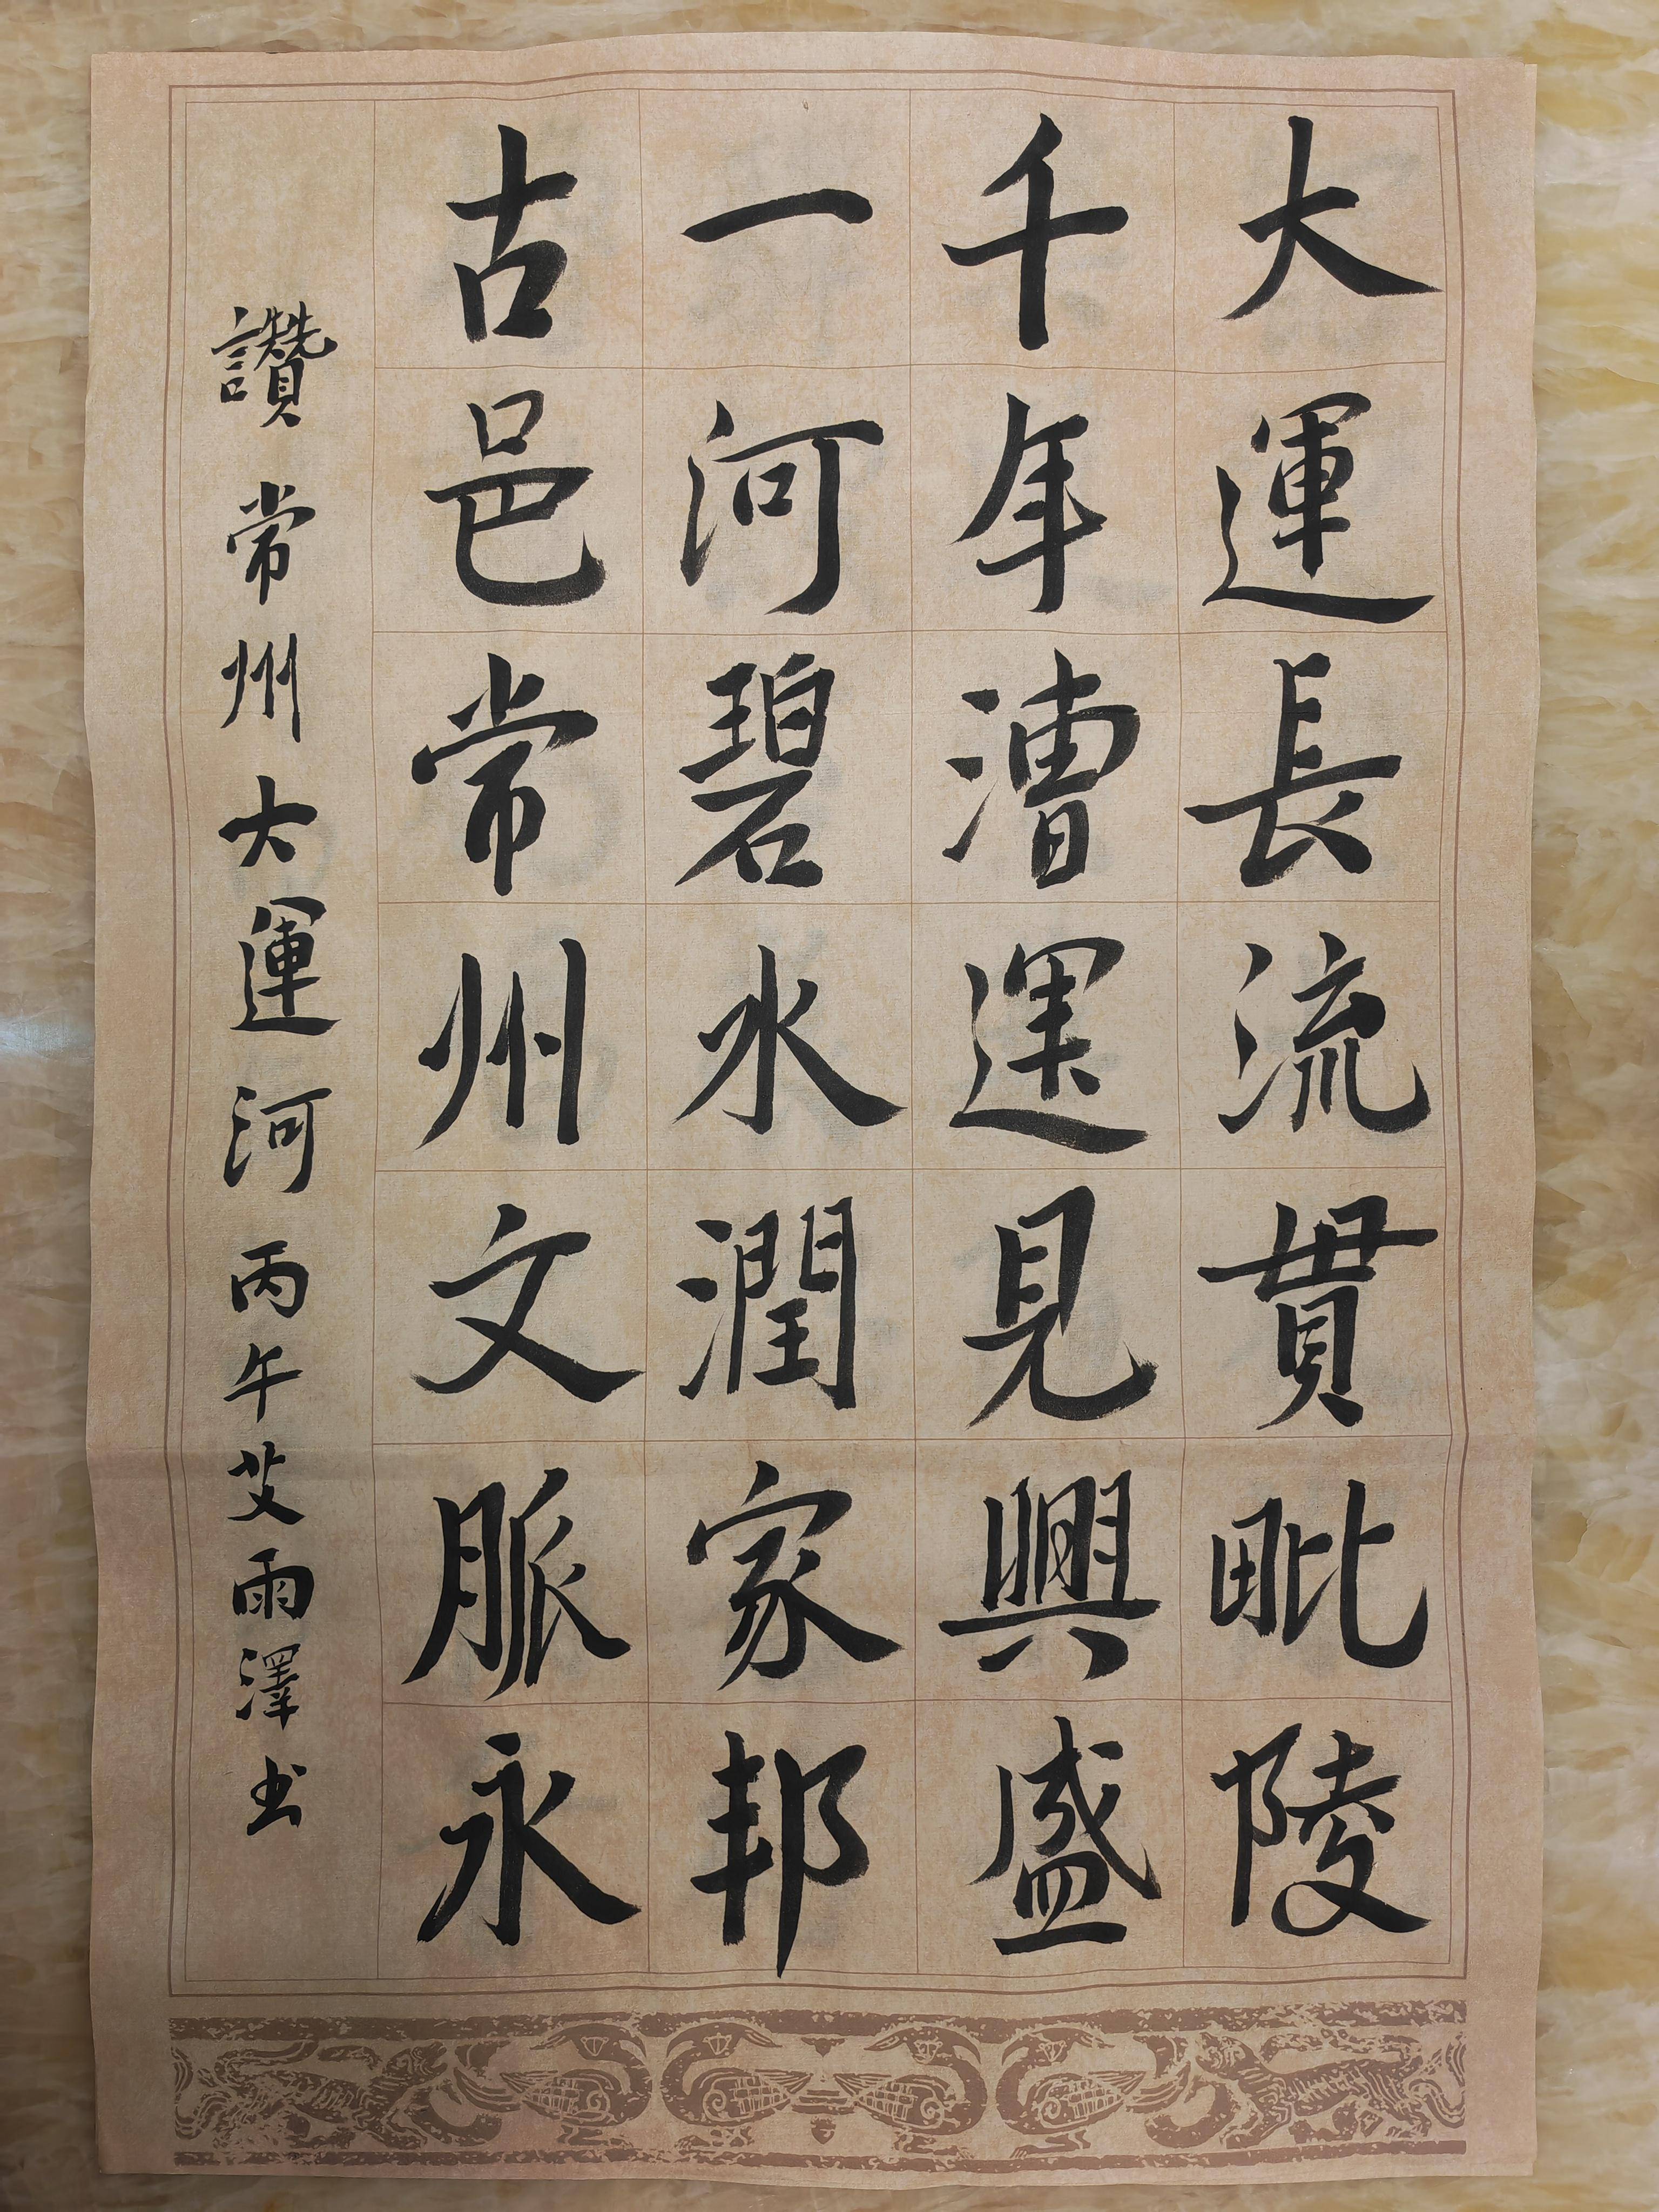 大運長流貫毗陵
千年漕運見興盛
一河碧水潤家邦
古邑常州文脈永
讚常州大運河丙午艾雨澤书